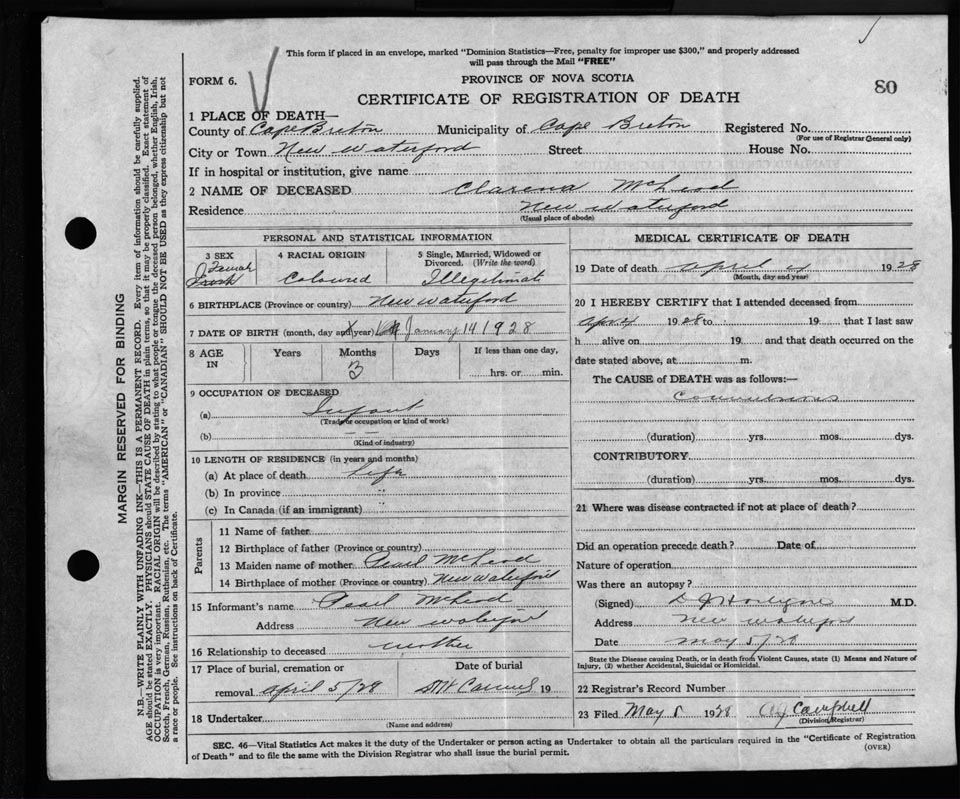 This form if placed in an envelope, marked "Dominion Statistics—Free, penalty for improper use $300," and properly addressed
will pass through the Mail "FREE"
FORM 6.
PROVINCE OF NOVA SCOTIA
80
CERTIFICATE OF REGISTRATION OF DEATH
1 PLACE OF DEATH—
County of Cape Breton Municipality of Cape Breton Registered No.
(For use of Registrar General only)
City or Town New Waterford Street House No.
If in hospital or institution, give name
2 NAME OF DECEASED McLeod
Residence New Waterford
(Usual place of abode)
PERSONAL AND STATISTICAL INFORMATION
3 SEX
4 RACIAL ORIGIN
Coloured
5 Single, Married, Widowed or
Divorced. (Write the word)
Illegitimate
6 BIRTHPLACE (Province or country) New Waterford
7 DATE OF BIRTH (month, day and year) January 14 1928
8 AGE
IN
Years
Months
3
Days
If less than one day,
hrs. or min.
9 OCCUPATION OF DECEASED
(a) Infant
(Trade or occupation or kind of work)
(b)
(Kind of industry)
10 LENGTH OF RESIDENCE (in years and months)
(a) At place of death Life
(b) In province "
(c) In Canada (if an immigrant) "
Parents
11 Name of father
12 Birthplace of father (Province or country)
13 Maiden name of mother Pearl McLeod
14 Birthplace of mother (Province or country) New Waterford
15 Informant's name Pearl McLeod
Address New Waterford
16 Relationship to deceased mother
17 Place of burial, cremation or
Date of burial
removal April 5/28 Mt Carmel 19
18 Undertaker
(Name and address)
MEDICAL CERTIFICATE OF DEATH
19 Date of death April 4 1928
(Month, day and year)
20 I HEREBY CERTIFY that I attended deceased from
Apr 4 1928 to 19 that I last saw
h alive on 19 and that death occurred on the
date stated above, at m.
The CAUSE of DEATH was as follows:—
Convulsions
(duration) yrs. mos. dys.
CONTRIBUTORY
(duration) yrs. mos. dys.
21 Where was disease contracted if not at place of death?
Did an operation precede death? Date of
Nature of operation
Was there an autopsy?
(Signed) M.D.
Address New Waterford
Date May 5/28
State the Disease causing Death, or in death from Violent Causes, state (1) Means and Nature of
Injury, (2) whether Accidental, Suicidal or Homicidal.
22 Registrar's Record Number
23 Filed May 5 1928 Campbell
(Division Registrar)
SEC. 46—Vital Statistics Act makes it the duty of the Undertaker or person acting as Undertaker to obtain all the particulars required in the "Certificate of Registration
of Death" and to file the same with the Division Registrar who shall issue the burial permit.
(OVER)
MARGIN RESERVED FOR BINDING
N.B.—WRITE PLAINLY WITH UNFADING INK—THIS IS A PERMANENT RECORD. Every item of information should be carefully supplied.
AGE should be stated EXACTLY. PHYSICIANS should STATE CAUSE OF DEATH in plain terms, so that it may be properly classified. Exact statement of
OCCUPATION is very important. RACIAL ORIGIN will be described by stating to what people or tongue the deceased person belonged, whether English, Irish,
Scotch, French, German, Russian, Ruthenian, etc. The terms "AMERICAN" or "CANADIAN" SHOULD NOT BE USED as they express citizenship but not
a race or people. See instructions on back of Certificate.